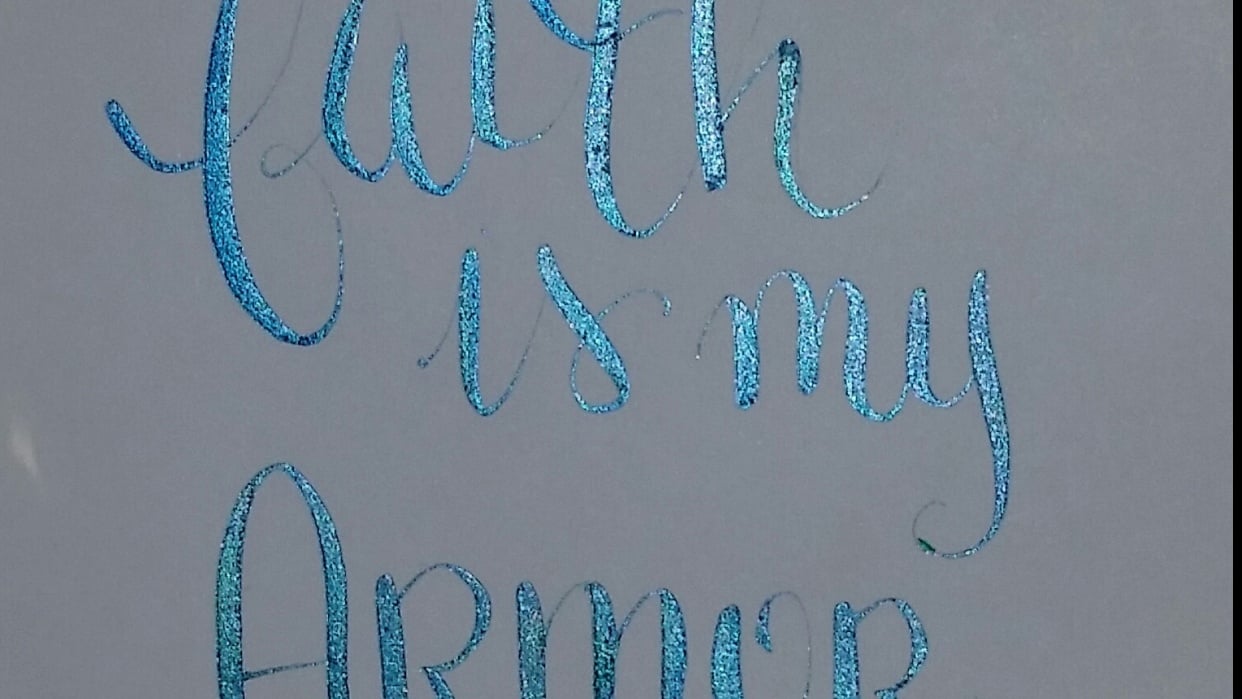 faith
is my
Armor